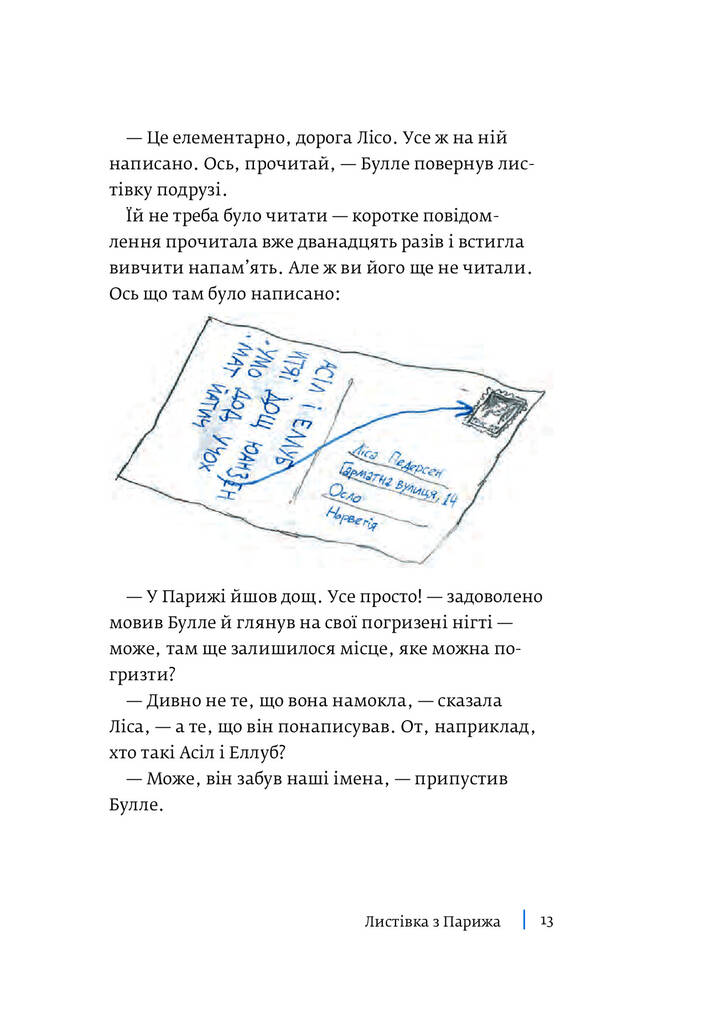 — Це елементарно, дорога Лісо. Усе ж на ній
написано. Ось, прочитай, — Булле повернув лис-
тівку подрузі.
Їй не треба було читати — коротке повідом-
лення прочитала вже дванадцять разів і встигла
вивчити напам’ять. Але ж ви його ще не читали.
Ось що там було написано:
АСІЛ І ЕЛЛУБ
ИТЯІ ДОЩ ЮАНЗЕН
Ліса Педерсен
Гарматна вулиця, 14
Осло
Норвегія
— У Парижі йшов дощ. Усе просто! — задоволено
мовив Булле й глянув на свої погризені нігті —
може, там ще залишилося місце, яке можна по-
гризти?
— Дивно не те, що вона намокла, — сказала
Ліса, — а те, що він понаписував. От, наприклад,
хто такі Асіл і Еллуб?
— Може, він забув наші імена, — припустив
Булле.
Листівка з Парижа 13